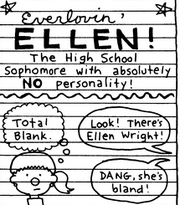 Everlovin'
ELLEN!
The High School
Sophomore with absolutely
NO personality!
Total
Blank.
Look! There's
Ellen Wright!
DANG, she's
bland!